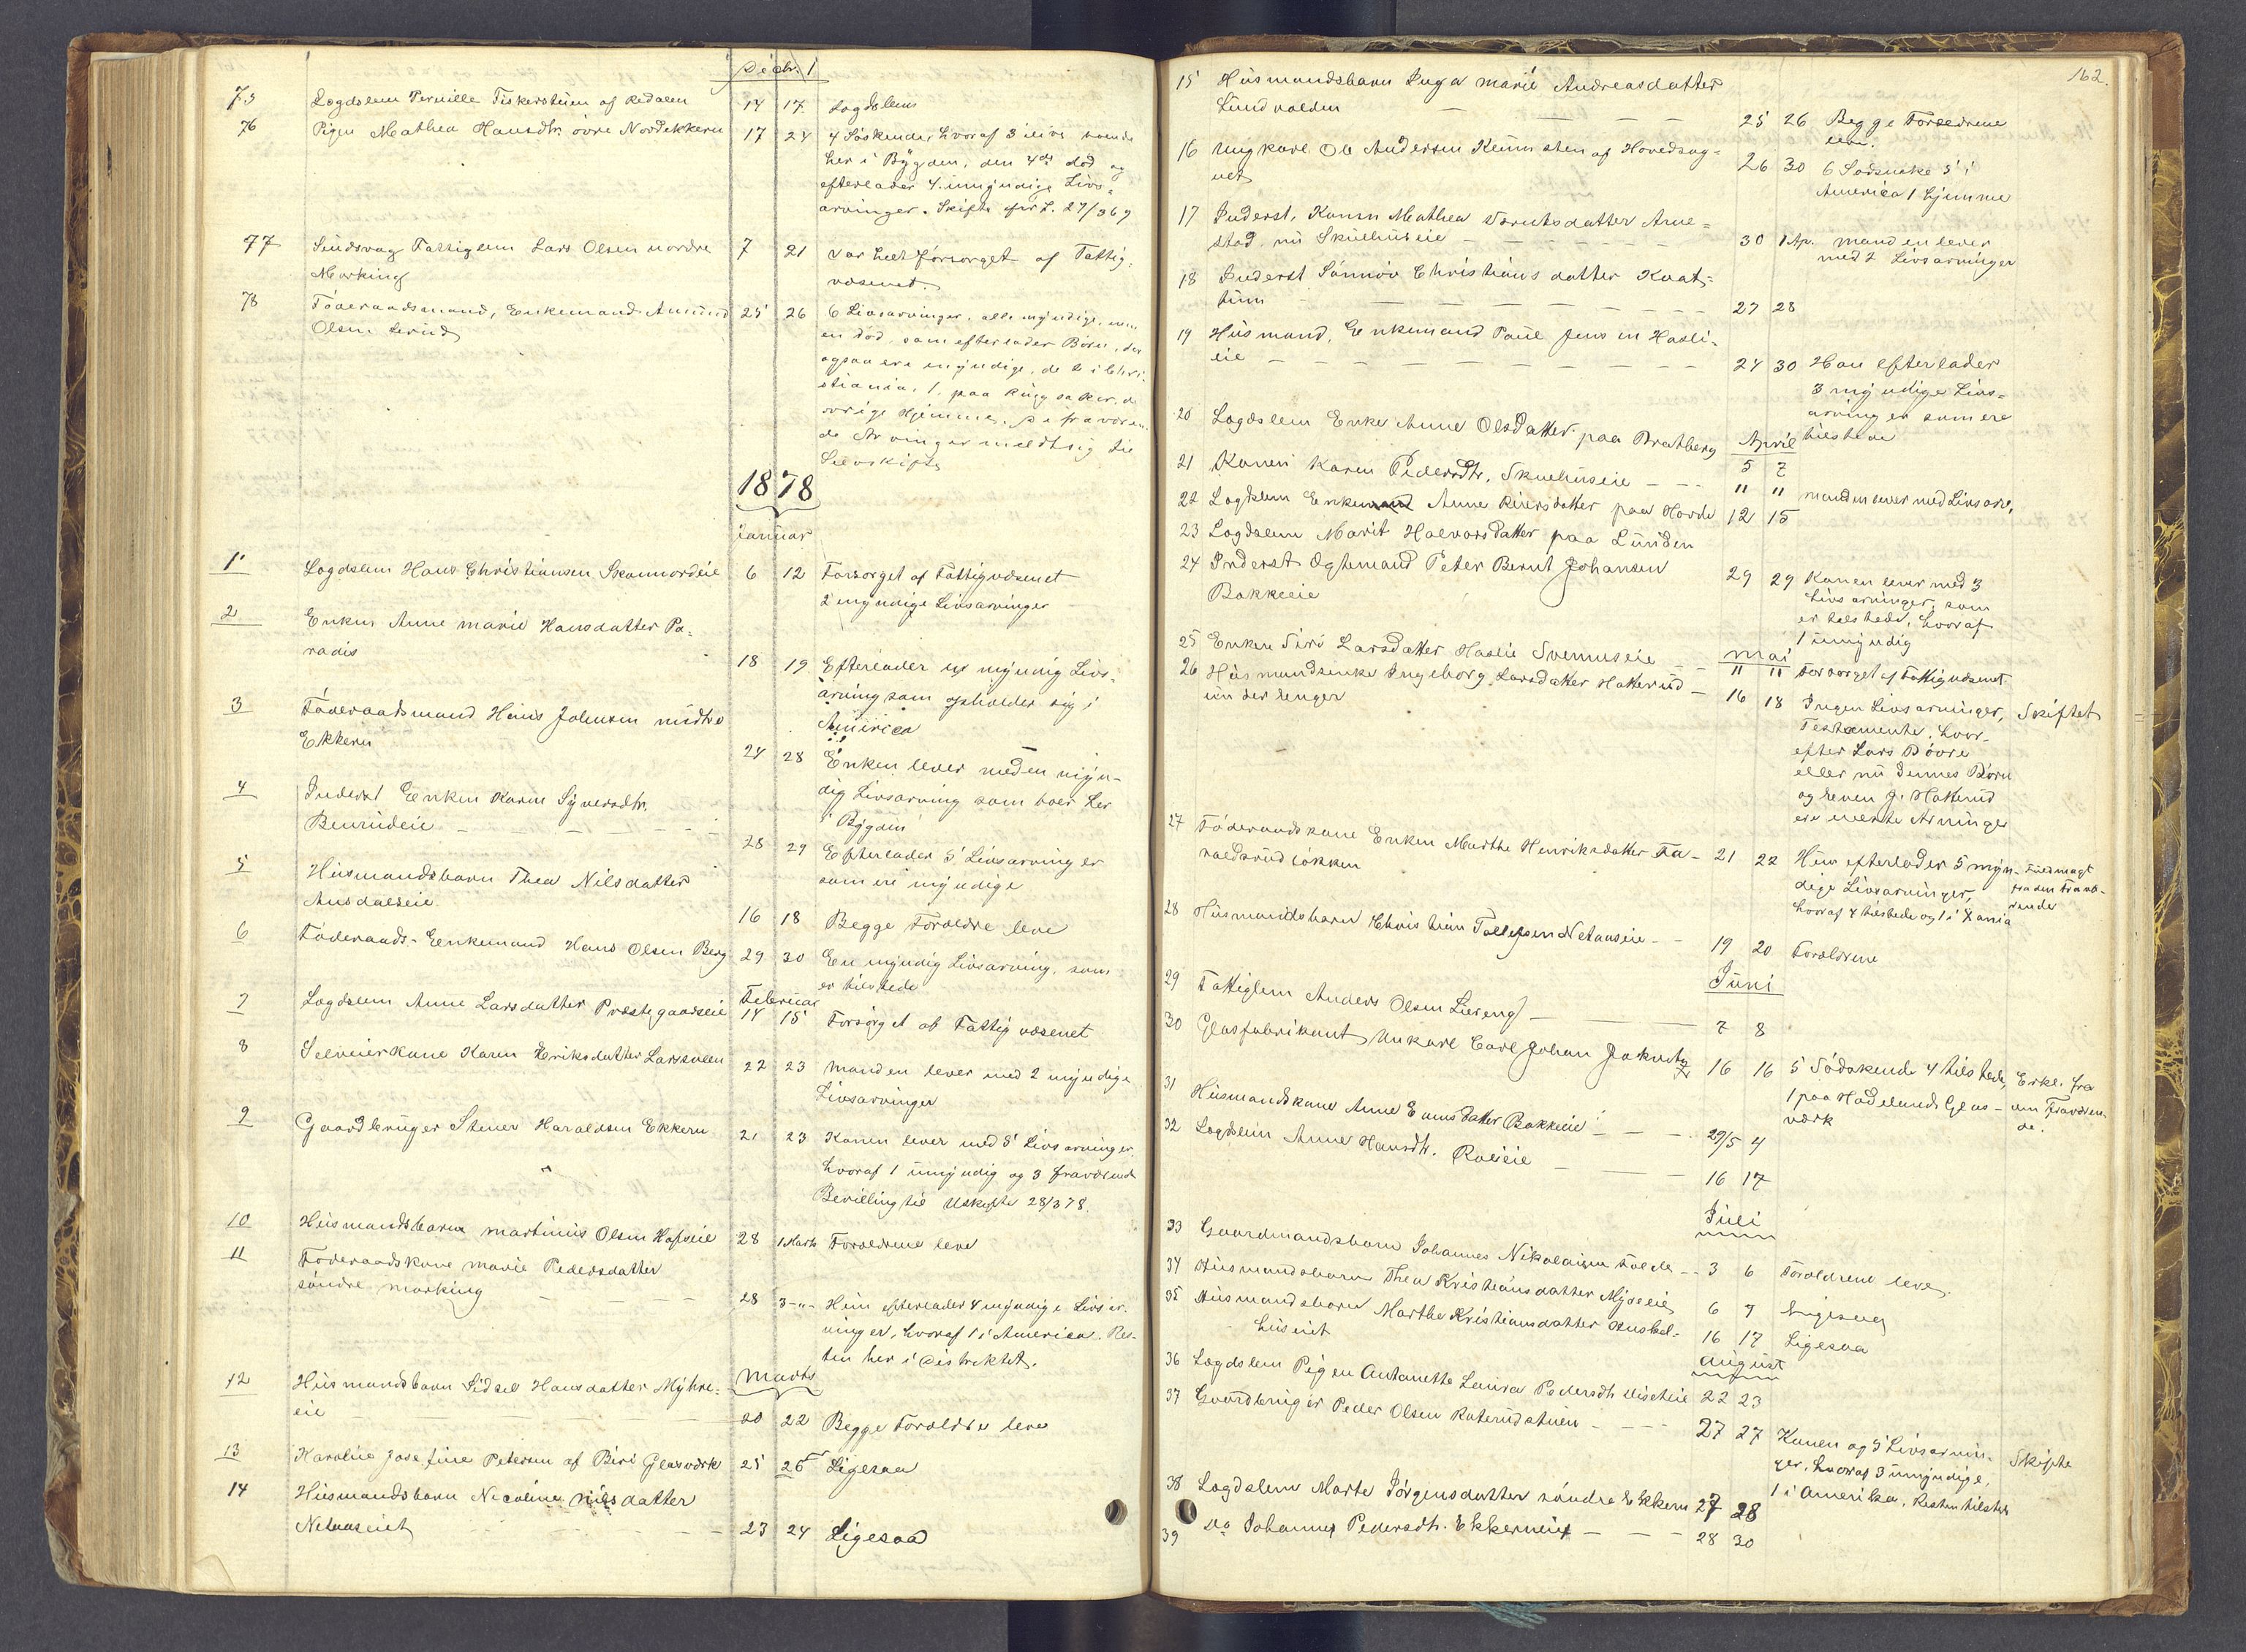 Decbr.
75 Lægdslem Pernille Fiskerstuen af Redalen 14 17 Lægdslem
76 Pigen Mathea Hansdtr. övre Nordekkern 17 24 4 Söskende, hvoraf 3 ilive boende
her i Bÿgden, den 4de död og
efterlader 4 umÿndige Livs-
arvinger. Skifte
77 Sindsvag Fattiglem Lars Olsen nordre 7 21 var helt forsørget af Fattig-
Mærking væsenet.
78 Föderaadsmand, Enkemand Amund 25 26 6 Livsarvinger, alle mÿndige, men
Olsen en död, som efterlader Börn, der
ogsaa ere mÿndige, de 2 i Chri-
stiania, 1 paa Ringsaker, de
övrige Hjemme. De fraværen-
de Arvinger meldt sig til
Selvskifte
1878
Januar
1 Lægdslem Hans Christiansen Skonnordeie 6 12 Forsörget af Fattigvæsenet
2 mÿndige Livsarvinger
2 Enken Anne Marie Hansdatter Pa-
radis 18 19 Efterlader en mÿndig Livs-
arving som opholder sig i
America
3 Föderaadsmand Hans Johnsen nordre
Ekkern 24 28 Enken lever med en mÿn-
dig Livsarving som boer her
i Bÿgden
4 Inderst Enken Karen Sÿversdtr.
28 29 Efterlader 5 Livsarvinger
som ere mÿndige
5 Husmandsbarn Thea Nilsdatter
Ausdalseie 16 18 Begge Forældre leve
6 Föderaads-Enkemand Hans Olsen Berg 29 30 En mÿndig Livsarving, som
er tilstede
Februar
7 Lægdslem Anne Larsdatter Præstegaardseie 14 15 Forsörget af Fattigvæsenet
8 Selveierkone Karen Eriksdatter Larssveen 22 23 Manden lever med 2 mÿndige
Livsarvinger
9 Gaardbruger Stener Haraldsen Ekkern 21 23 Konen lever med 8 Livsarvinger,
hvoraf 1 umÿndig og 3 fraværende
Bevilling til Uskifte 28/3 78.
10 Husmandsbarn Martinus Olsen Hofseie 28 1 Marts Forældrene leve
11 Föderaadskone Marie Pedersdatter
söndre Mærking 28 3 -"- Hun efterlader 4 mÿndige Livsar-
vinger, hvoraf 1 i America. Res-
ten her i Distriktet.
Marts
12 Husmandsbarn Sidsel Hansdatter Mÿhre-
eie 20 22 Begge Forældre leve
13 Karoline Josefine Petersen af Biri Glasværk 25 26 Ligesaa
14 Husmandsbarn Nicoline Nilsdatter
Netauseiet 23 24 Ligesaa
162.
15 Husmandsbarn Inga Marie Andreasdatter
Lundvolden 25 26 Begge Forældrene
leve.
16 Ungkarl Ole Andersen af Hovedsog-
net 26 30 6 Södskende 5 i
America 1 hjemme
17 Inderst, Konen Mathea Berntsdatter Arne-
stad, nu Skulhuseie 30 1 Ap. manden lever
med 2 Livsarvinger
18 Inderst Sönnöv Christiansdatter Kaat-
27 28
19 Husmand, Enkemand Paul Jensen Hasli-
eie 24 30 Han efterlader
3 mÿndige Livs-
arvinger som ere
tilstede
April
20 Lægdslem Enke Anne Olsdatter paa Bratberg 5 7
21 Konen Karen Pedersdtr. Skulhuseie " " manden lever med Livsarv.
22 Lægdslem Enke Anne Reiersdatter paa Hovde 12 15
23 Lægdslem Marit Halvorsdatter paa Lunden
24 Inderst Ogtemand Peter Bernt Johansen
Bakkeeie 29 29 Konen lever med 3
Livsarvinger, som
er tilstede, hvoraf
1 umÿndig
Mai
25 Enken Siri Larsdatter Haslie Svenuseie " " Forsorget af Fattigvæsenet
26 Husmandsenke Ingeborg Larsdatter Hatterud 16 18 Ingen Livsarvinger, Skiftet
under Unger
Testamente, hvor-
efter Lars Bövre
eller nu dennes Börn
og
ere eneste Arvinger
27 Föderaadskone Enken Marthe Henriksdatter Fa- 21 22 Hun efterlader 5 mÿn- Fuldmagt
raldsrudlökken dige Livsarvinger, fra den Fravæ-
hvoraf 4 tilstede og 1 i Xania rende
28 Husmandsbarn Christian Tollefsen Netauseie 19 20 Forældrene
Juni
29 Fattiglem Anders Olsen Liereng 7 8
30 Glasfabrikant Unkarl Carl Johan 16 16 5 Södskende 4 tilstede, Erkl. fra
1 paa Hadelands Glas- den Fraværen-
værk de.
31 Husmandskone Anne Evensdatter Bakkeeie 29/5 4
32 Lægdslem Anne Hansdtr. 16 17
Juli
33 Gaardmandsbarn Johannes Nikolaisen 3 6 Forældrene leve.
34 Husmandsbarn Thea Kristiansdatter 6 7 Ligesaa
35 Husmandsbarn Marthe Kristiansdatter 16 17 Ligesaa
huseiet
August
36 Lægdslem Pigen Antonette Laura Pedersdtr 22 23
37 Gaardbruger Peder Olsen Raterudstuen 27 27 Konen og 5 Livsarvin- Skifte
ger, hvoraf 3 umÿndige,
1 i Amerika, Resten tilstede
38 Lægdslem Marte Jörgensdatter söndre Ekkern 27 28
39 Do Johanne Pedersdtr. Ekkerneiet 28 30